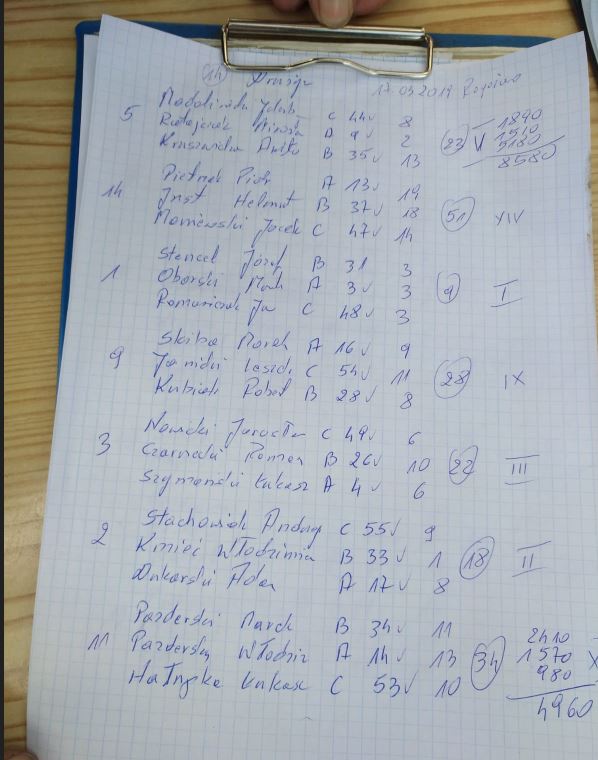 14
17.03.2019
5 C 44 8
A 9 2 23 V 1890 1510
B 35 13 5180
8580
Piotr A 13 19
14 Just Helmut B 37 18 51 XIV
Jacek C 47 14
Stencel Józef B 31 3
1 Oborski A 3 3 9 I
C 48 3
Skiba Marek A 16 9
9 C 54 11 28 IX
Kubiak B 28 8
Jarosław C 49 6
3 Czarnecki Roman B 26 10 22 III
Szymański Łukasz A 4 6
Stachowiak Andrzej C 55 9
2 Kmieć Włodzimierz B 33 1 18 II
Adam A 17 8
Pazderski Marek B 34 11
11 Pazderski A 14 13 34 2410 1570 X
Łukasz C 53 10 980
4960